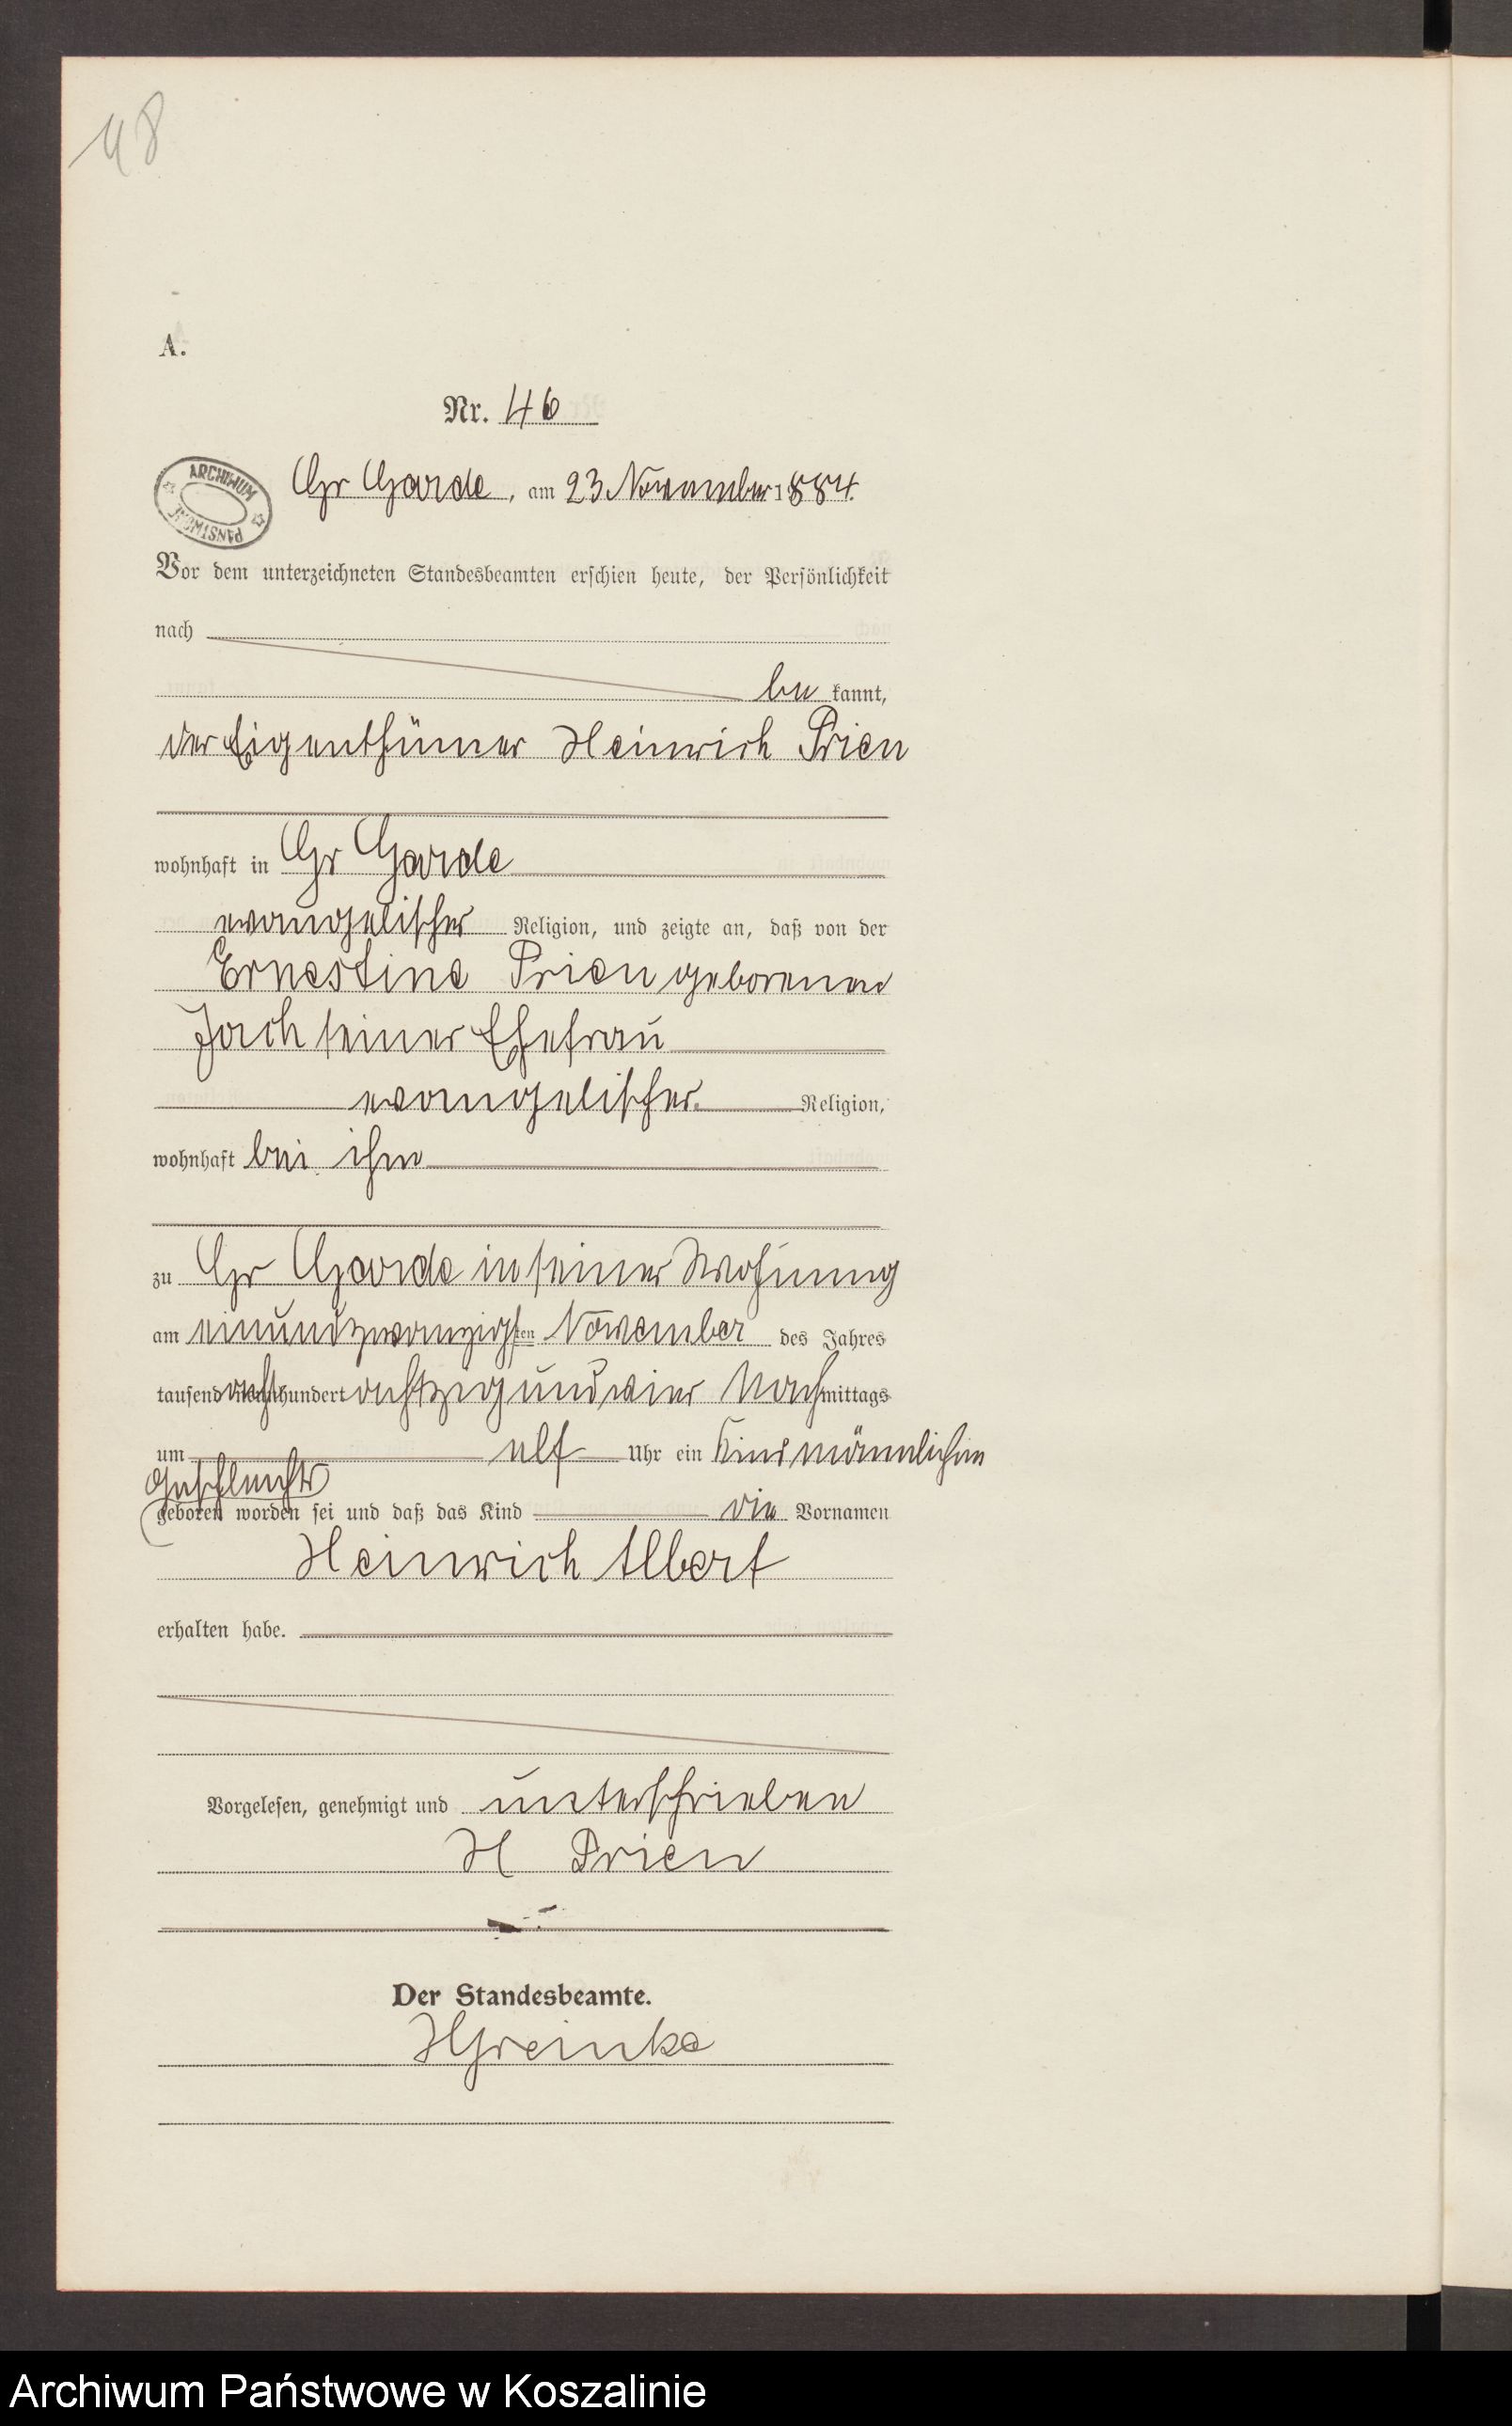 48
A.
Nr. 46
ARCHIWUM PAŃSTWOWE
Gr Garde, am 23 November 1884.
Vor dem unterzeichneten Standesbeamten erschien heute, der Persönlichkeit
nach
be kannt,
der Eigenthümer Heinrich Prien
wohnhaft in Gr Garde
evangelischer Religion, und zeigte an, daß von der
Ernestine Prien geborenen
Jach seiner Ehefrau
evangelischer Religion,
wohnhaft bei ihm
zu Gr Garde in seiner Wohnung
am einundzwanzigsten November des Jahres
tausend acht hundert achtzig und vier Nachmittags
um elf Uhr ein Kind männlichen
Geschlechts
geboren worden sei und daß das Kind die Vornamen
Heinrich Albert
erhalten habe.
Vorgelesen, genehmigt und unterschrieben
H Prien
Der Standesbeamte.
HGreinke
Archiwum Państwowe w Koszalinie